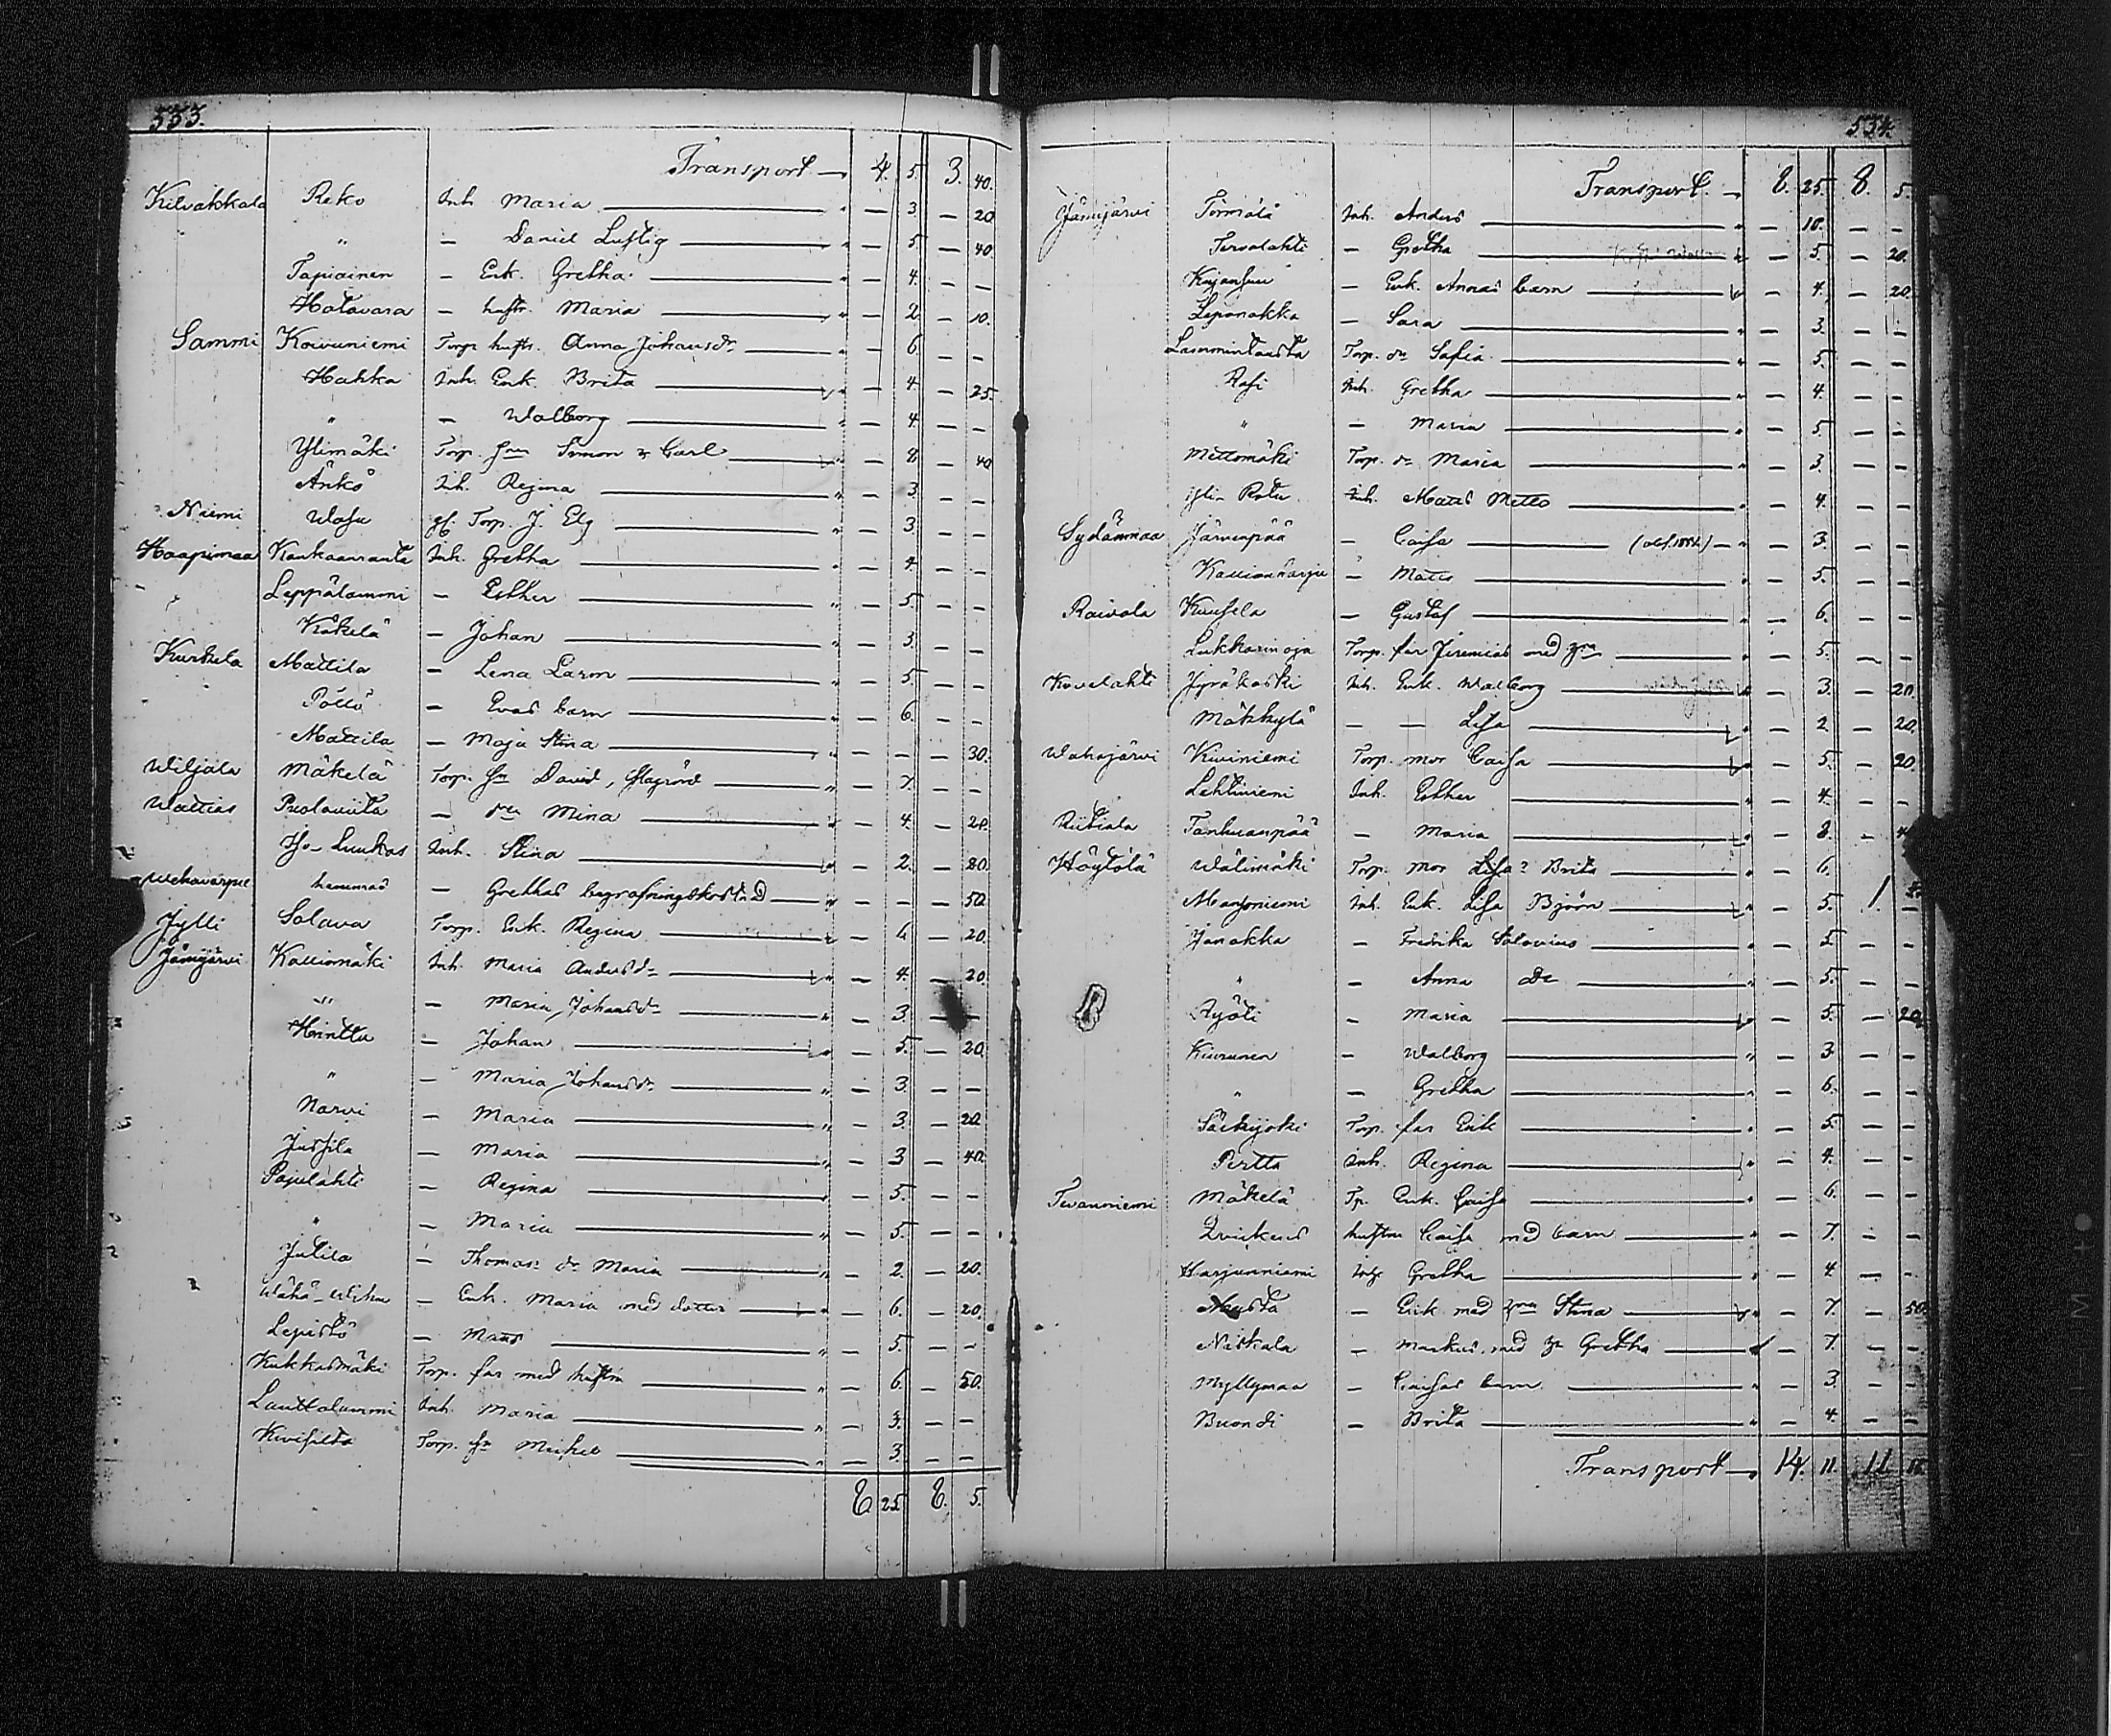 533.
Transport — 4. 5. 3. 40.
Kilvakkala Reko Inh. Maria — 3. — 20
" — Daniel Lustig — 5. — 40.
Tapiainen — Enk. Gretha — 4. — —
Hatavara — hustr. Maria — 2. — 10.
Sammi Koivuniemi Torp. hustr. Anna Johansdr — 6. — —
Hakka Inh. Enk. Brita — 4. — 25.
" — Walborg — 4. — —
Ylimäki Torp. sön Simon & Carl — 8. — 40
Änkö Inh. Regina — 3. — —
Niemi Wasu gl. Torp. J. Elg — 3. — —
Haapimaa Kankaanranta Inh. Gretha — 4. — —
Leppälammi — Esther — 5. — —
Käkelä — Johan — 3. — —
Kurkela Mattila — Lena Larm — 5. — —
Pöllö — Evas barn — 6. — —
Mattila — Maja Stina — — — 30.
Wiljala Mäkelä Torp. sn David, — 7. — —
Wattias Puolaviita — dr Mina — 4. — 20.
Iso-Luukas Inh. Stina — 2. — 80.
— Grethas begrafningskostnad — — — 50.
Jylli Salava Torp. Enk. Regina — 4 — 20.
Jämijärvi Kalliomäki Inh. Maria Andersdr — 4. — 20.
" — Maria Johansdr — 3. — —
Hinttu — Johan — 5. — 20.
" — Maria Johansdr — 3. — —
Narvi — Maria — 3. — 20.
Jussila — Maria — 3 — 40.
Pajulahti — Regina — 5. — —
" — Maria — 5. — —
Jutila — Thomas dr Maria — 2. — 20.
Wähä- — Enk. Maria med dotter — 6. — 20.
Lepistö — Mats — 5. — —
Kukkasmäki Torp. far med hustru — 6. — 50.
Lauttalammi Inh. Maria — 3. — —
Kivisilta Torp. sn Mickel — 3. — —
8 25 8. 5.
534.
Transport. — 8. 25. 8. 5.
Jämijärvi Törmälä Inh. Anders — 10. — —
Tervalahti — Gretha — 5. — 20.
Kujansuu — Enk. Annas barn — 4. — 20.
Leponokka — Sara — 3. — —
Lammintausta Torp. dr Sofia — 5. — —
Rasi Inh. Gretha — 4. — —
" — Maria — 5. — —
Mettomäki Torp. dr Maria — 3. — —
Yli- Inh. Matts Metto — 4. — —
Sydänmaa Järvenpää — Caisa — — 3. — —
Kallionharju — Matts — 5. — —
Raivala Kuusela — Gustaf — 6. — —
Lukkarinoja Torp. far Jeremias med — 5. — —
Kovelahti Jyräkoski Inh. Enk. Walborg — 3. — 20.
Mäkkylä — — Lisa — 2. — 20.
Wahojärvi Kiviniemi Torp. mor Caisa — 5. — 20.
Lehtiniemi Inh. Esther — 4. — —
Riitiala Tanhuanpää — Maria — 8. —
Höytölä Wälimäki Torp. mor Lisa? Brita — 6.
Mansoniemi Inh. Enk. Lisa Björn — 5. 1.
Janakka — Fredrika Salovius — 5. — —
" — Anna Do — 5. — —
Ryöti — Maria — 5. — 20.
Kiurunen — Walborg — 3. — —
" — Gretha — 6. — —
Särkijoki Torp. far Erik — 5. — —
Pertta Inh. Regina — 4. — —
Tevanniemi Mäkelä Tp. Enk. Caisa — 6. — —
hustru Caisa med barn — 7. — —
Harjunniemi Inh. Gretha — 4. — —
— Erik med Stina — 7. — 50.
Niskala — Markus med Gretha — 7. — —
Myllymaa — Caisas barn — 3. — —
Buondi — Brita — 4. — —
Transport — 14. 11. 11